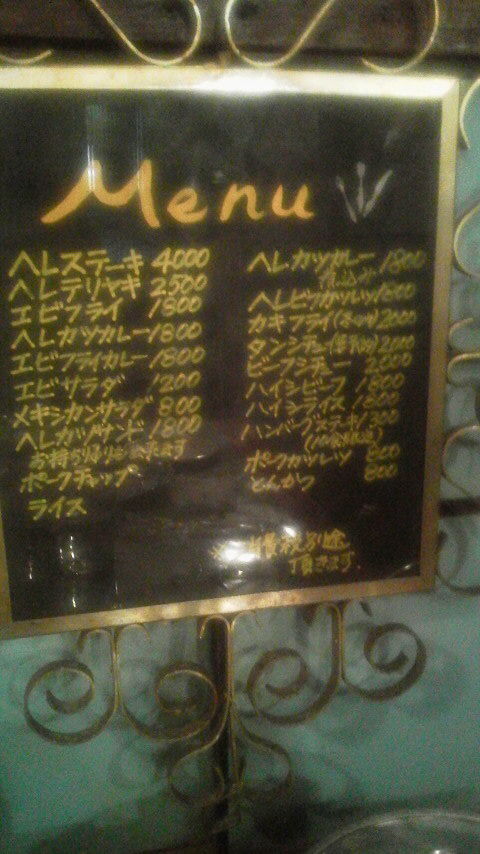 Menu
ヘレステーキ 4000
ヘレテリヤキ 2500
エビフライ 1800
ヘレカツカレー 1800
エビフライカレー 1800
エビサラダ 1200
メキシカンサラダ 800
ヘレカツサンド 1800
お持ち帰り出来ます
ポークチャップ
ライス
ヘレカツカレー 1800
煮込み
ヘレビフカツレツ 1800
カキフライ 2000
タンシチュー 2000
ビーフシチュー 2000
ハイシビーフ 1800
ハイシライス 1800
ハンバーグステーキ 1300
ポークカツレツ 800
とんかつ 800
※消費税別途
頂きます。